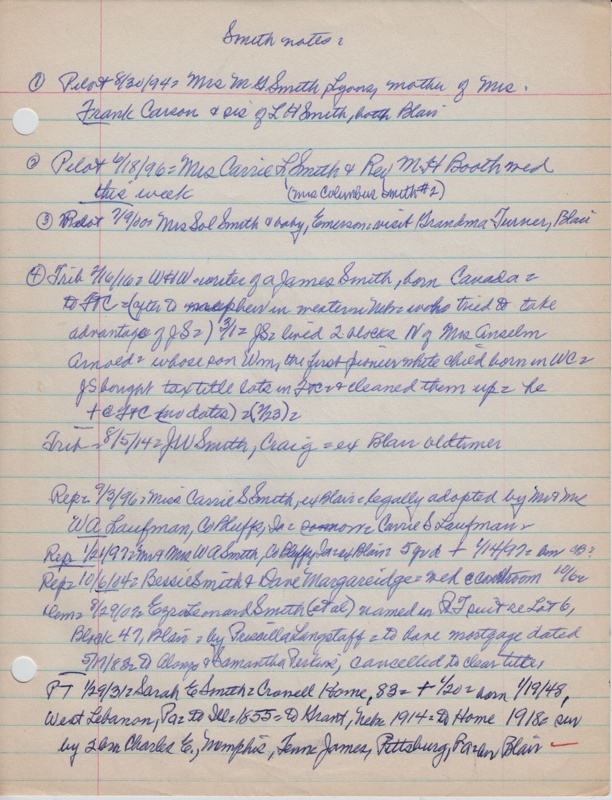 Smith notes =
① Pilot 8/30/94 = Mrs M G Smith, Lyons, mother of Mrs.
Frank Carson & sis of L H Smith, both Blair
② Pilot 6/18/96 = Miss Carrie L Smith & Rev M H Booth wed
this week (Mrs Columbus Smith #2)
③ Pilot 7/9/00 = Mrs Sol Smith & baby, Emerson = visit Grandma Turner, Blair
④ Trib 2/16/16 = W H W = writer of a James Smith, born Canada =
to FtC = (after D nephew in western Neb = who tried to take
advantage of JS =) 3/1 = JS = lived 2 blocks N of Mrs Anselm
Arnold = whose son Wm, the first pioneer white child born in WC =
JS bought tax title lots in FtC & cleaned them up = he
+ @ FtC (no dates) = (3/23) =
Trib = 8/5/14 = JW Smith, Craig = ex Blair oldtimer
Rep = 9/3/96 = Miss Carrie S Smith, ex Blair = legally adopted by Mr & Mrs
W A Laufman, Co Bluffs, Ia = now = Carrie S Laufman =
Rep 1/21/97 = Mr & Mrs W A Smith, Co Bluffs, Ia = ex Blair = 5 yr d + 1/14/97 =
Rep = 10/6/04 = Bessie Smith & Dave Margareidge = wed @ courtroom
Dem = 8/29/07 = Ezra Leonard Smith (et al) named in suit re Lot 6,
Block 47, Blair = by Priscilla Langstaff = to have mortgage dated
5/17/83 = to Alonzo & Samantha Perkins, cancelled to clear title,
PT 1/29/31 = Sarah E Smith = Crowell Home, 83 = + 1/20 = born 1/19/48,
West Lebanon, Pa = to Ill = 1855 = to Grant, Nebr 1914 = to Home 1918 = sur
by 2 sons Charles E., Memphis, Tenn James, Pittsburg, Pa = bur Blair